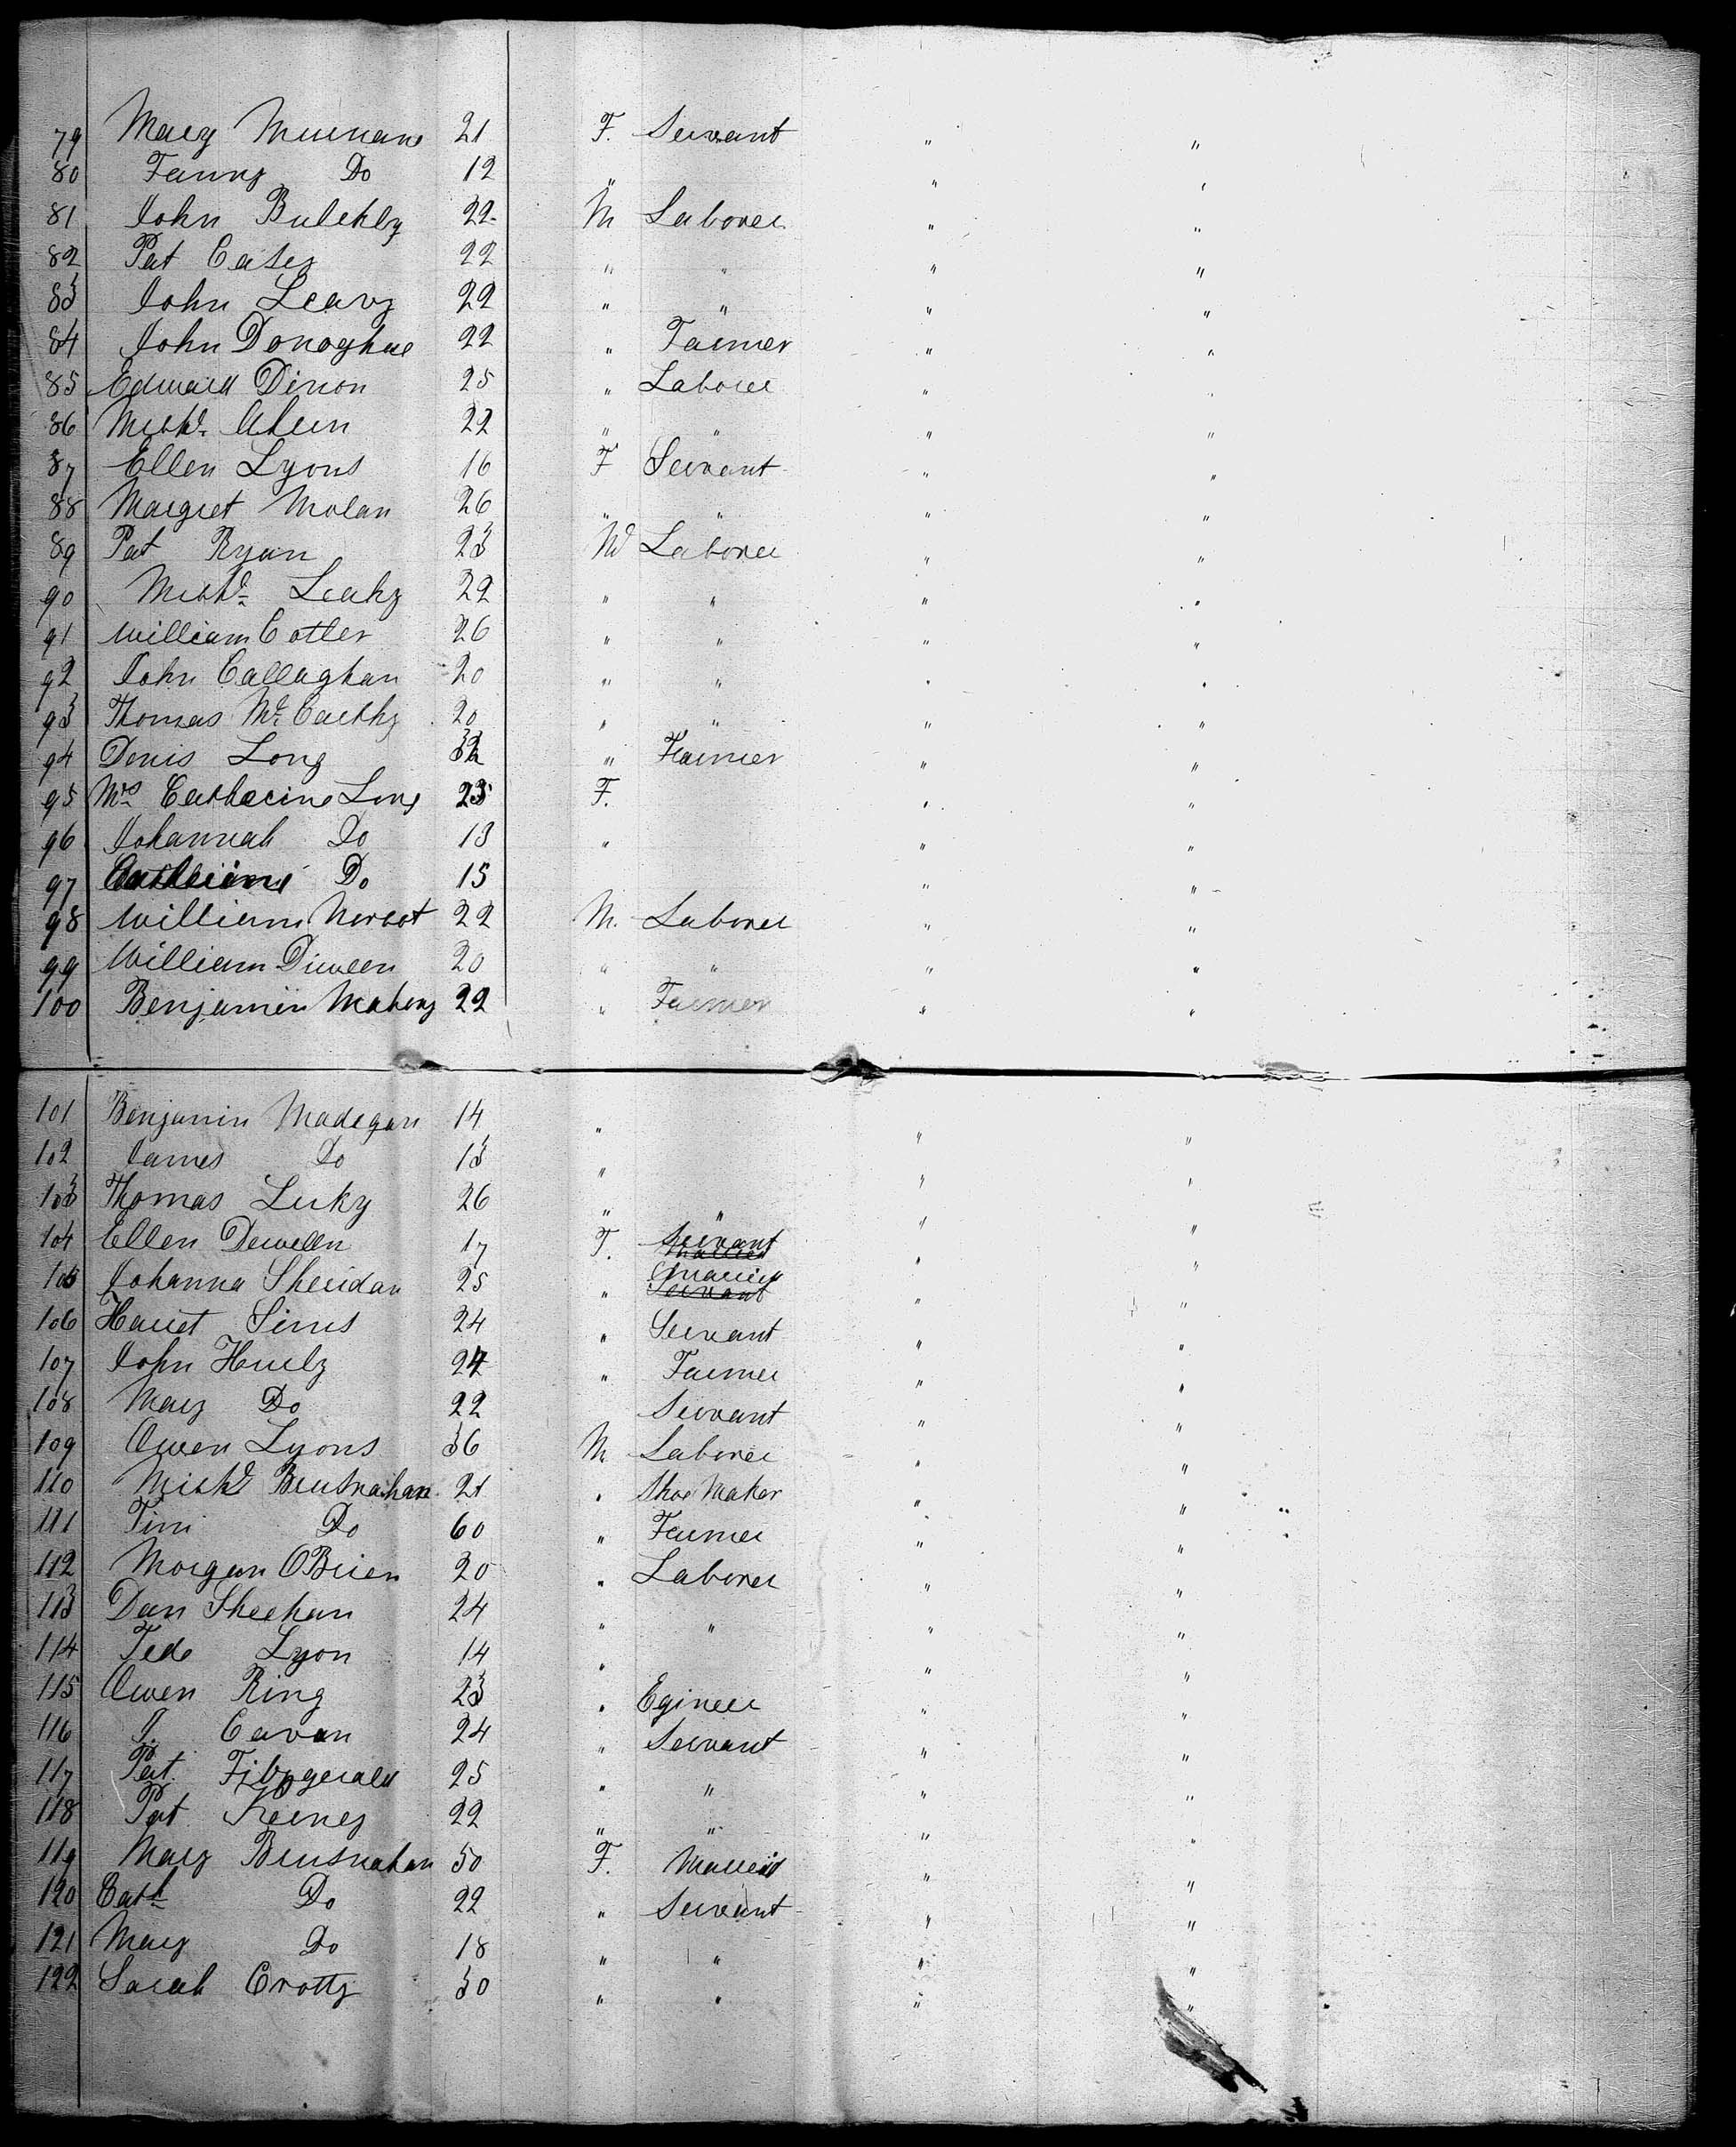 79 Mary Murnane 21 F. Servant " "
80 Fanny Do 12 " " "
81 John Bulckly 22 M Laborer " "
82 Pat Casey 22 " " " "
83 John Leavy 22 " " " "
84 John Donoghue 22 " Farmer " "
85 Edward Dinon 25 " Laborer " "
86 Michl. Ahern 22 " " " "
87 Ellen Lyons 16 F Servant " "
88 Margret Molan 26 " " " "
89 Pat Ryan 23 M Laborer " "
90 Michl. Leahy 22 " " " "
91 William Cotter 26 " " " "
92 John Callaghan 20 " " " "
93 Thomas Mc Carthy 20 " " " "
94 Denis Long 32 " Farmer " "
95 Mrs Catharine Long 25 F. " "
96 Johannah Do 13 " " "
97 Do 15 " "
98 William Norcot 22 M. Laborer " "
99 William Diween 20 " " " "
100 Benjamin Mahony 22 " Farmer " "
101 Benjamin Madegan 14 " " "
102 James Do 13 " " "
103 Thomas Lucky 26 " " " "
104 Ellen Dewelln 17 F. Servant " "
105 Johanna Sheridan 25 " Married Servant " "
106 Harriet Sims 24 " Servant " "
107 John Hurly 24 " Farmer " "
108 Mary Do 22 Servant " "
109 Owen Lyons 36 M Laborer " "
110 Michl Brusnahan 21 " Shoe Maker " "
111 Tim Do 60 " Farmer " "
112 Morgan OBrien 20 " Laborer " "
113 Dan Sheehan 24 " " " "
114 Tede Lyon 14 " " "
115 Owen Ring 23 " Egineer " "
116 J. Cavan 24 " Servant " "
117 Pat Fitzgerald 25 " " " "
118 Pat Keeney 22 " " " "
119 Mary Brusnahan 50 F. Married " "
120 Cath Do 22 " Servant " "
121 Mary Do 18 " " " "
122 Sarah Crotty 30 " " " "